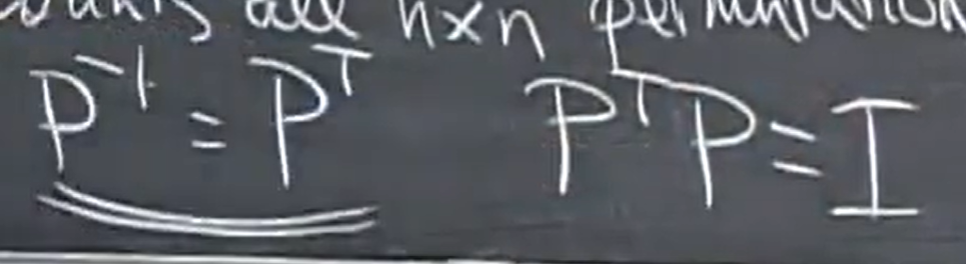 counts all n×n permutation
P⁻¹ = Pᵀ PᵀP = I